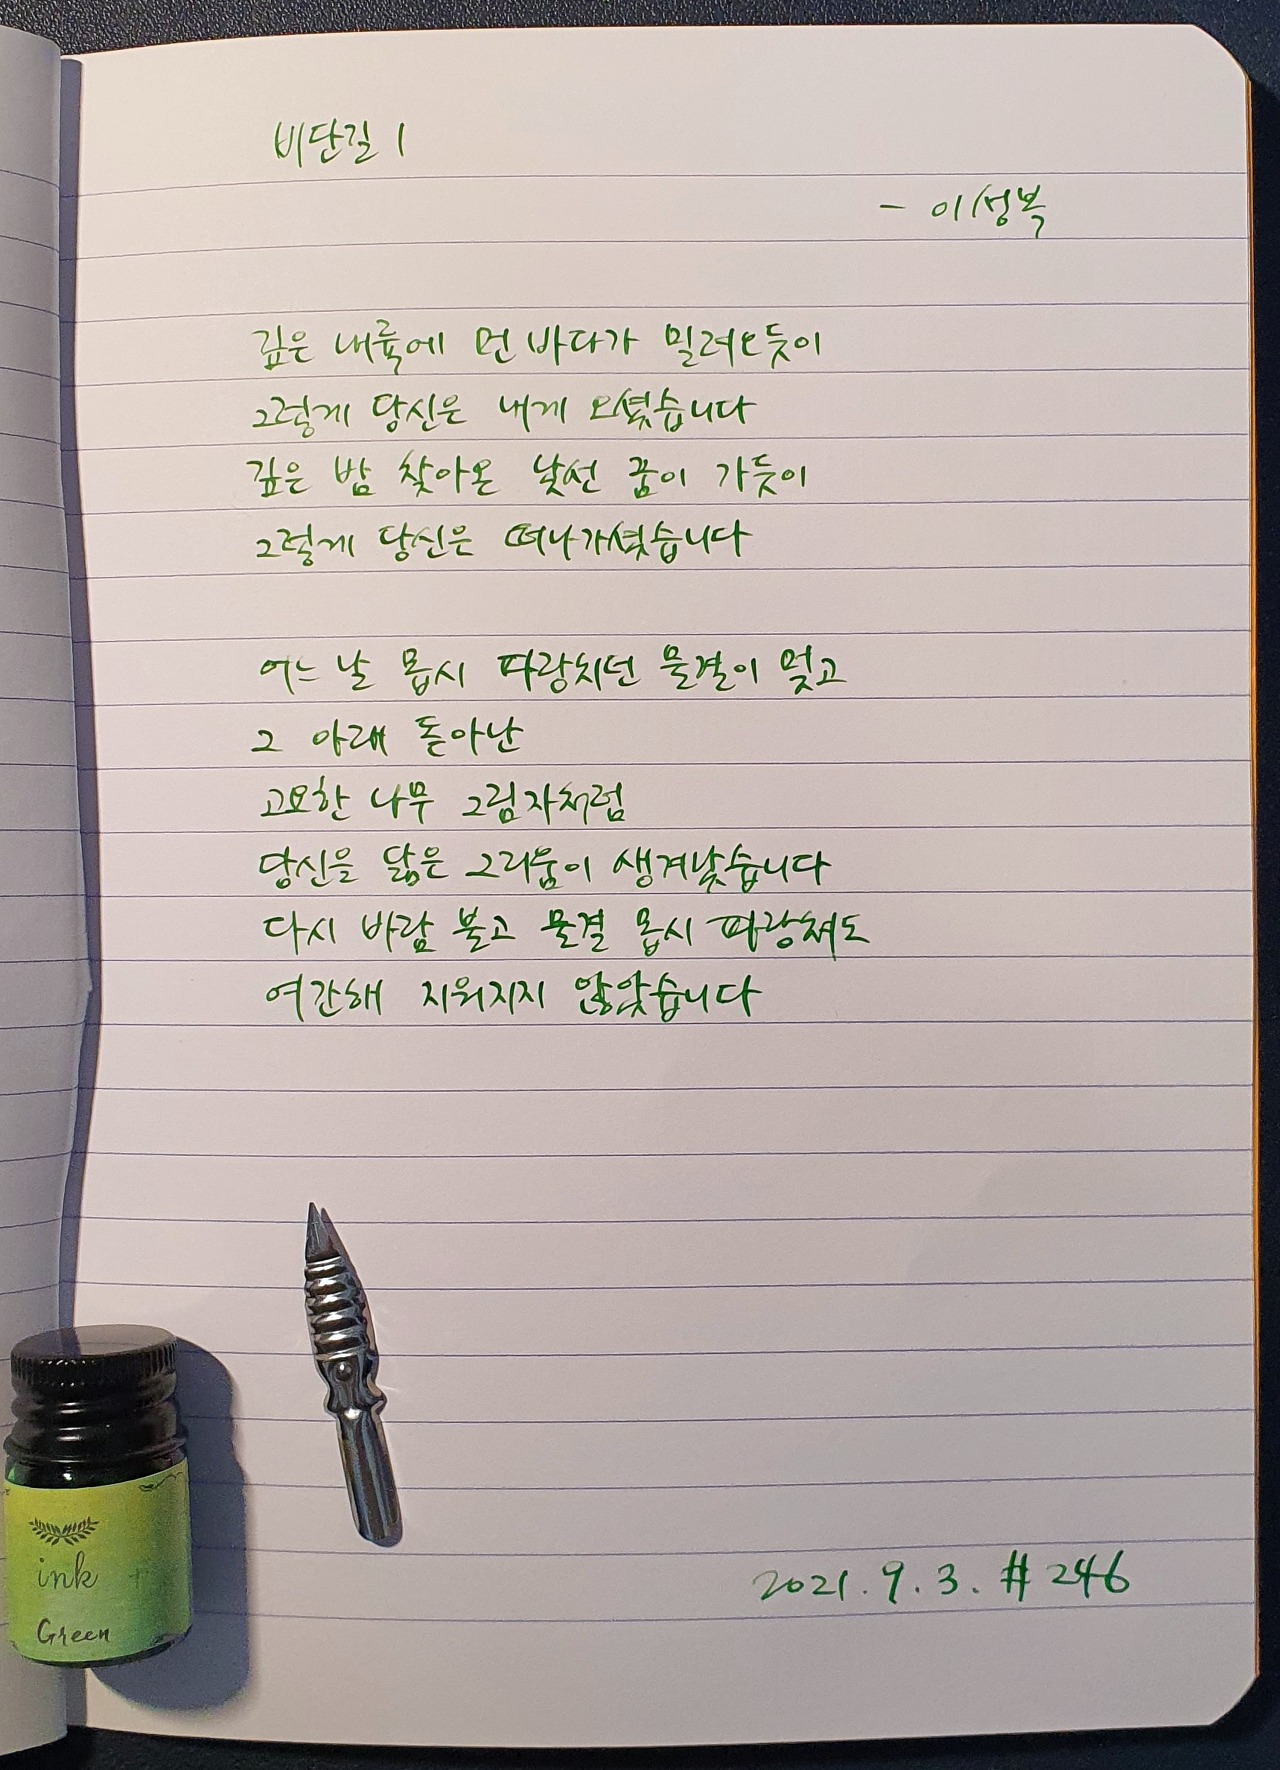 비단길 1
- 이성복
깊은 내륙에 먼 바다가 밀려오듯이
그렇게 당신은 내게 오셨습니다
깊은 밤 찾아온 낯선 꿈이 가듯이
그렇게 당신은 떠나가셨습니다
어느 날 몹시 파랑치던 물결이 멎고
그 아래 돋아난
고요한 나무 그림자처럼
당신을 닮은 그리움이 생겨났습니다
다시 바람 불고 물결 몹시 파랑쳐도
여간해 지워지지 않았습니다
ink
Green
2021. 9. 3. # 246